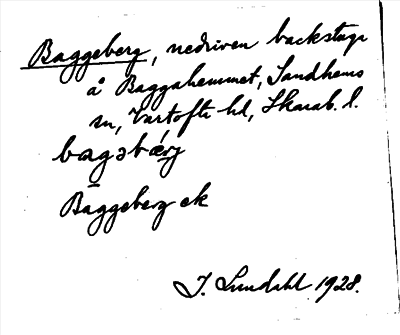 Baggeberg, nedriven backstuga
å Baggahemmet, Sandhems
sn, Vartofta hd, Skarab. l.
bagəbærj
Baggeberg ek
I. Lundahl 1928.